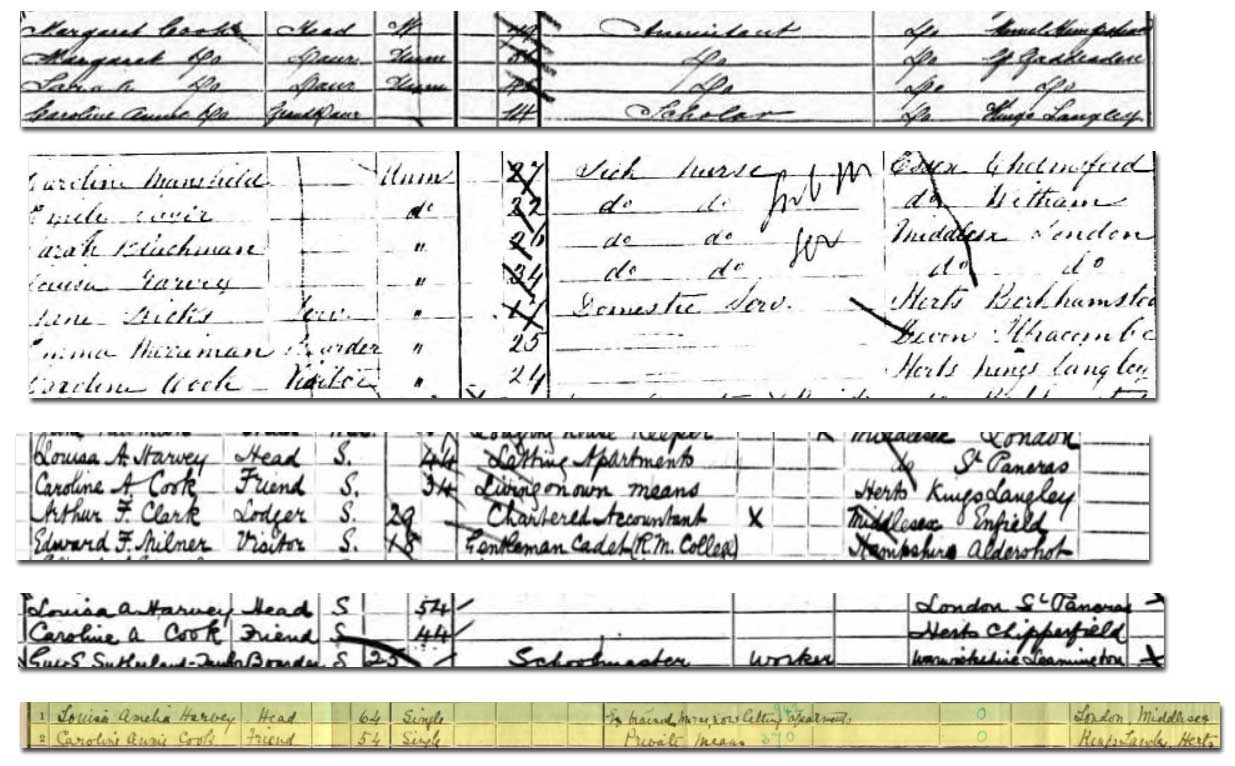 Margaret Cook Head W Annuitant Do Hemel Hempstead
Margaret Do Daur Unm Do Do Gt Gaddesden
Sarah Do Daur Unm Do Do Do
Caroline Annie Do GrandDaur 14 Scholar Do Kings Langley
Caroline Mansfield Unm 27 Sick nurse Essex Chelmsford
do 22 do do do Witham
Sarah 26 do do Middlesex London
Louisa Harvey " 34 do do do do
Jane Serv. " Domestic Serv. Herts Berkhamsted
Emma Merriman Boarder " 25 Devon Ilfracombe
Caroline Cook Visitor " 24 Herts Kings Langley
Lodging House Keeper Middlesex London
Louisa A. Harvey Head S. 44 Letting Apartments do St Pancras
Caroline A Cook Friend S. 34 Living on own means Herts Kings Langley
Arthur F. Clark Lodger S. 29 Chartered Accountant X Middlesex Enfield
Edward F. Milner Visitor S. 18 Gentleman Cadet (R.M. College) Hampshire Aldershot
Louisa A Harvey Head S 54 London St Pancras
Caroline A Cook Friend S 44 Herts Chipperfield
Guy S Boarder S 25 Schoolmaster Worker Warwickshire Leamington
1 Louisa Amelia Harvey Head 64 Single trained nurse now letting apartments 0 London, Middlesex
2 Caroline Annie Cook Friend 54 Single Private Means 390 0 Kings Langley, Herts